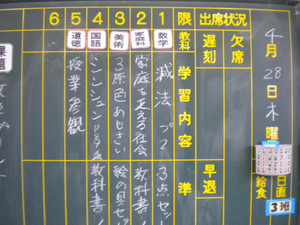 4月28日木曜
日直
給食
3班
出席状況
欠席
遅刻
早退
限 教科 学習内容 準
1 数学 減法 プリ 3点セッ
2 家庭科 家庭を支える社会 教科書
3 美術 3原色あじさい 絵の具セッ
4 国語 教科書
5 道徳 授業参観
6
課題